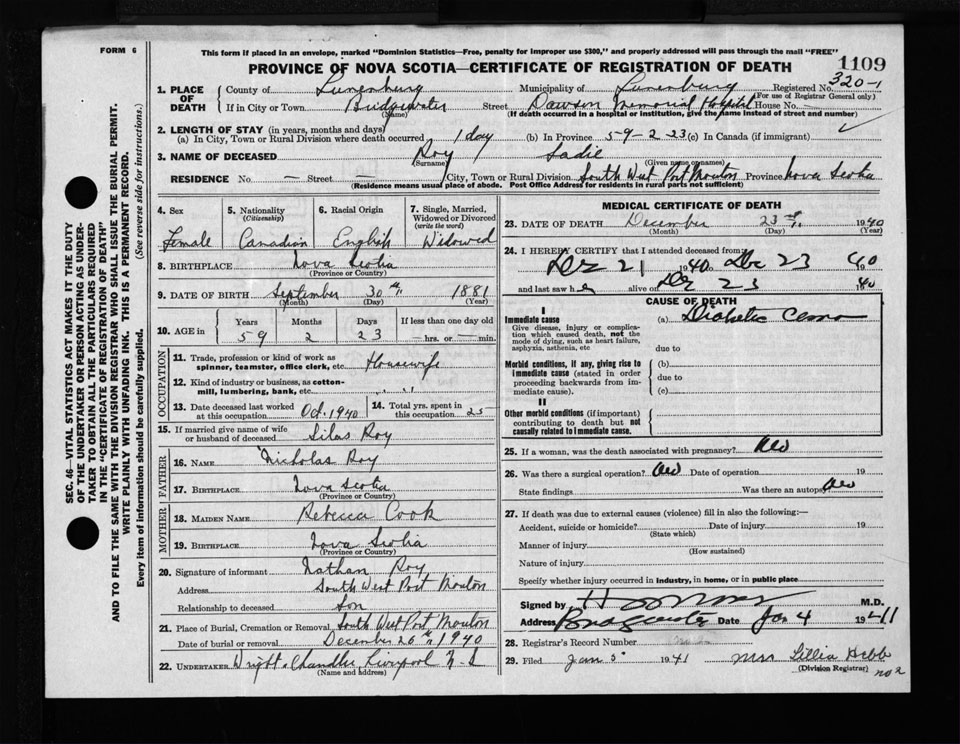 FORM 6
This form if placed in an envelope, marked "Dominion Statistics—Free, penalty for improper use $300," and properly addressed will pass through the mail "FREE"
PROVINCE OF NOVA SCOTIA—CERTIFICATE OF REGISTRATION OF DEATH
1109
320-1
1. PLACE OF DEATH
County of Lunenburg Municipality of Lunenburg Registered No.
(For use of Registrar General only)
If in City or Town Bridgewater Street Dawson Memorial Hospital House No. —
(Name) (If death occurred in a hospital or institution, give the name instead of street and number)
2. LENGTH OF STAY (in years, months and days)
(a) In City, Town or Rural Division where death occurred 1 day (b) In Province 59-2-23 (c) In Canada (if immigrant)
3. NAME OF DECEASED Roy Sadie
(Surname) (Given name or names)
RESIDENCE No. — Street — City, Town or Rural Division South West Port Mouton Province Nova Scotia
(Residence means usual place of abode. Post Office Address for residents in rural parts not sufficient)
4. Sex Female
5. Nationality (Citizenship) Canadian
6. Racial Origin English
7. Single, Married, Widowed or Divorced (write the word) Widowed
8. BIRTHPLACE Nova Scotia
(Province or Country)
9. DATE OF BIRTH September 30th 1881
(Month) (Day) (Year)
10. AGE in Years Months Days If less than one day old
59 2 23 hrs. or min.
OCCUPATION
11. Trade, profession or kind of work as spinner, teamster, office clerk, etc. Housewife
12. Kind of industry or business, as cotton-mill, lumbering, bank, etc. " "
13. Date deceased last worked at this occupation Oct. 1940
14. Total yrs. spent in this occupation 25
15. If married give name of wife or husband of deceased Silas Roy
FATHER
16. NAME Nicholas Roy
17. BIRTHPLACE Nova Scotia
(Province or Country)
MOTHER
18. MAIDEN NAME Rebecca Cook
19. BIRTHPLACE Nova Scotia
(Province or Country)
20. Signature of informant Nathan Roy
Address South West Port Mouton
Relationship to deceased Son
21. Place of Burial, Cremation or Removal South West Port Mouton
Date of burial or removal December 26th 1940
22. UNDERTAKER Wright & Chandler Liverpool N. S
(Name and address)
MEDICAL CERTIFICATE OF DEATH
23. DATE OF DEATH December 23rd 1940
(Month) (Day) (Year)
24. I HEREBY CERTIFY that I attended deceased from
Dec 21 1940 to Dec 23 1940
and last saw her alive on Dec 23 1940
CAUSE OF DEATH
I
Immediate cause
Give disease, injury or complication which caused death, not the mode of dying, such as heart failure, asphyxia, asthenia, etc
(a) Diabetic Coma
due to
Morbid conditions, if any, giving rise to immediate cause (stated in order proceeding backwards from immediate cause).
(b)
due to
(c)
II
Other morbid conditions (if important) contributing to death but not causally related to immediate cause.
25. If a woman, was the death associated with pregnancy? No
26. Was there a surgical operation? No Date of operation 19
State findings Was there an autopsy No
27. If death was due to external causes (violence) fill in also the following:—
Accident, suicide or homicide? Date of injury 19
(State which)
Manner of injury
(How sustained)
Nature of injury
Specify whether injury occurred in industry, in home, or in public place
Signed by M.D.
Address Bridgewater Date Jan 4 1941
28. Registrar's Record Number
29. Filed Jan 5 1941 Mrs Lillia Hebb
(Division Registrar)
no 2
SEC. 46—VITAL STATISTICS ACT MAKES IT THE DUTY OF THE UNDERTAKER OR PERSON ACTING AS UNDERTAKER TO OBTAIN ALL THE PARTICULARS REQUIRED IN THE "CERTIFICATE OF REGISTRATION OF DEATH" AND TO FILE THE SAME WITH THE DIVISION REGISTRAR WHO SHALL ISSUE THE BURIAL PERMIT.
WRITE PLAINLY WITH UNFADING INK. THIS IS A PERMANENT RECORD.
Every item of information should be carefully supplied. (See reverse side for instructions.)